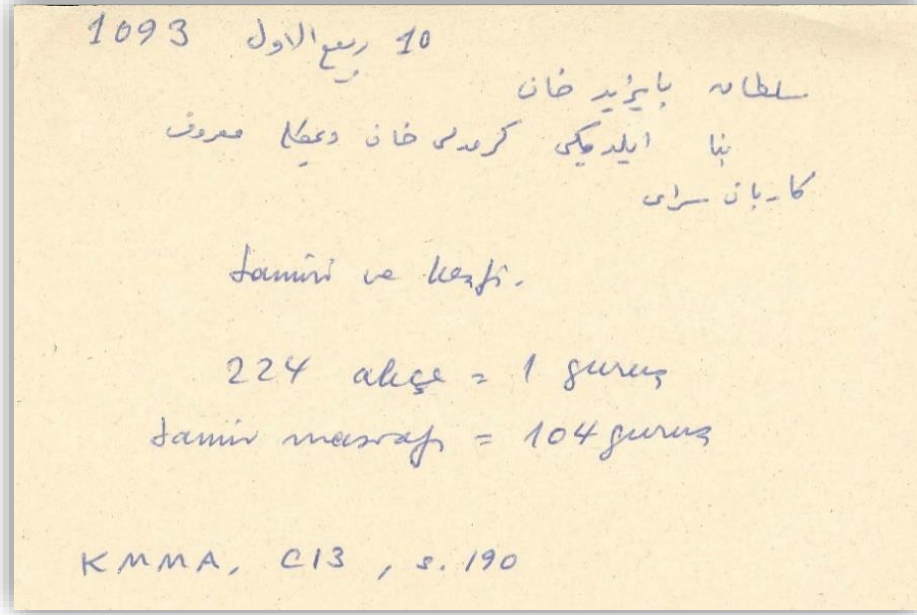 10 ربيع الاول 1093
سلطان بايزيد خان
بنا ايلديكى خان ديمكله معروف
كاربان سراى
tamiri ve keşfi.
224 akçe = 1 guruş
tamir masrafı = 104 guruş
KMMA, C13, s. 190